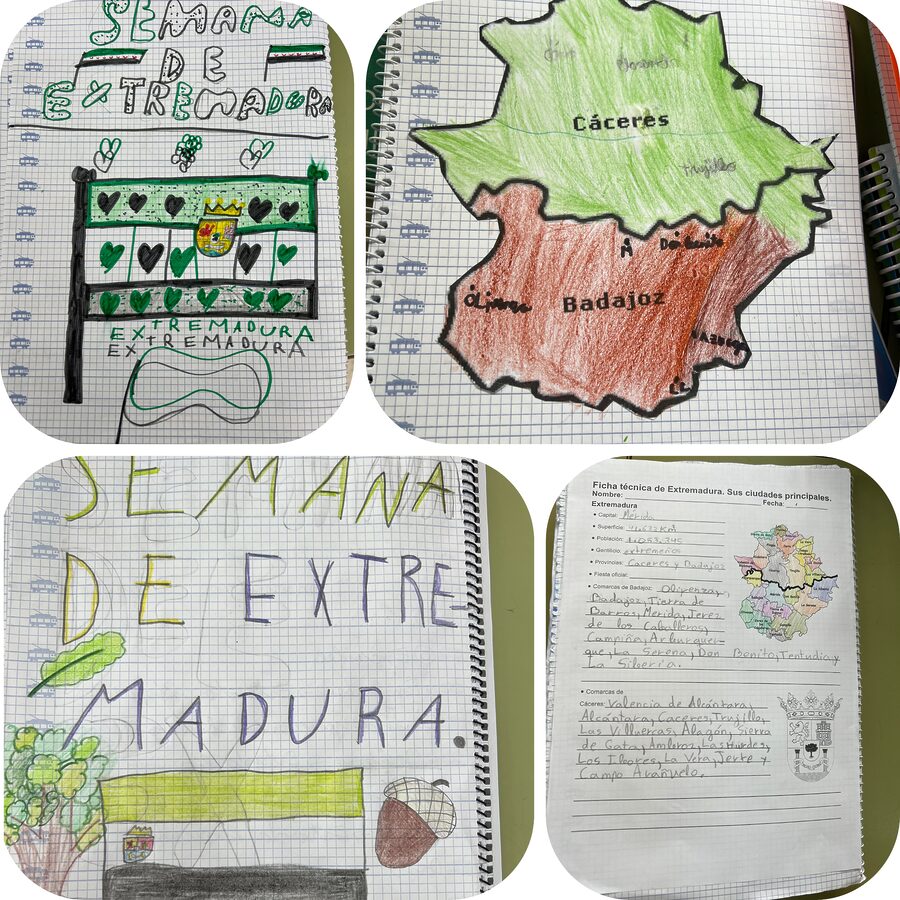 SEMANA
DE
EXTREMADURA
EXTREMADURA
EXTREMADURA
Cáceres
Trujillo
Don Benito
Olivenza
Badajoz
Azuaga
SEMANA
DE EXTRE
MADURA.
Ficha técnica de Extremadura. Sus ciudades principales.
Nombre: Fecha:
Extremadura
• Capital: Mérida
• Superficie:
• Población: 1.053.345
• Gentilicio: extremeños
• Provincias: Caceres y Badajoz
• Fiesta oficial:
• Comarcas de Badajoz: Olivenza,
Badajoz, Tierra de
Barros, Mérida, Jerez
de los Caballeros,
Campiña, Alburquer-
que, La Serena, Don Benito, Tentudia y
La Siberia.
• Comarcas de
Cáceres: Valencia de Alcántara,
Alcántara, Caceres, Trujillo,
Las Villuercas, Alagón, Sierra
de Gata, Ambroz, Las Hurdes,
Los Ibores, La Vera, Jerte y
Campo Arañuelo.